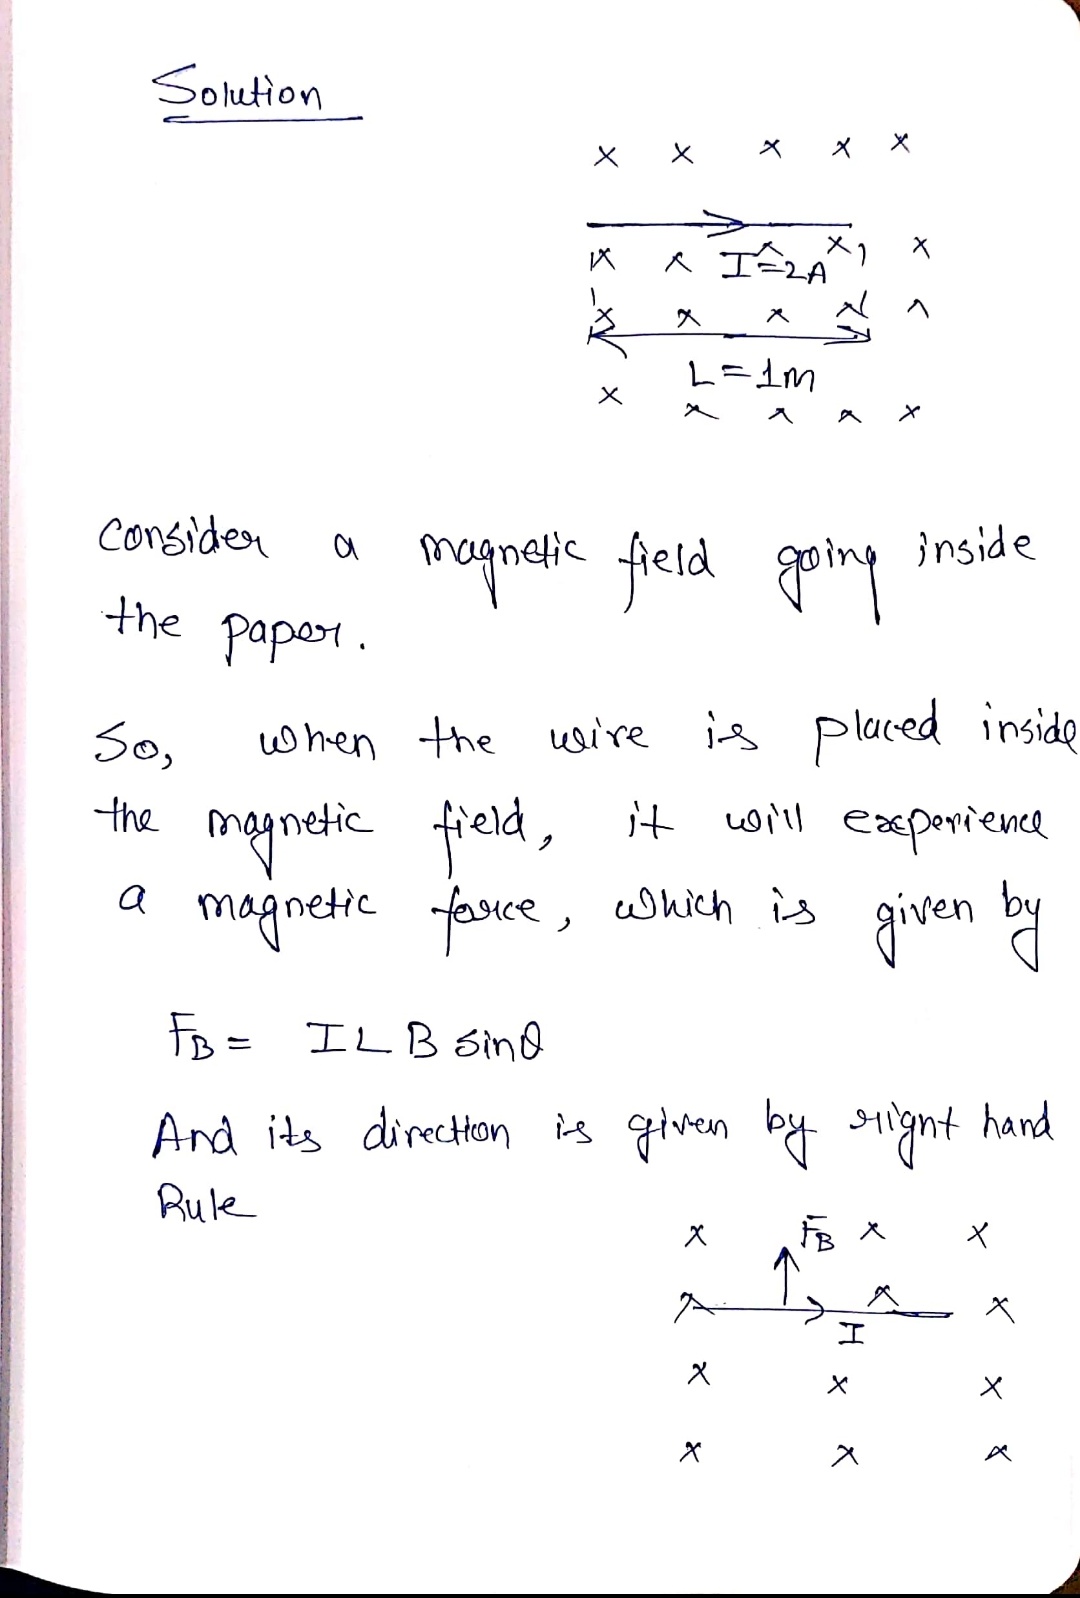 Solution
x x x x x
x x I=2A x x
x x x x x
L=1m
x x x x x
Consider a magnetic field going inside
the paper.
So, when the wire is placed inside
the magnetic field, it will experience
a magnetic force, which is given by
FB = ILB sinθ
And its direction is given by right hand
Rule
x FB x x
x x x
I
x x x
x x x